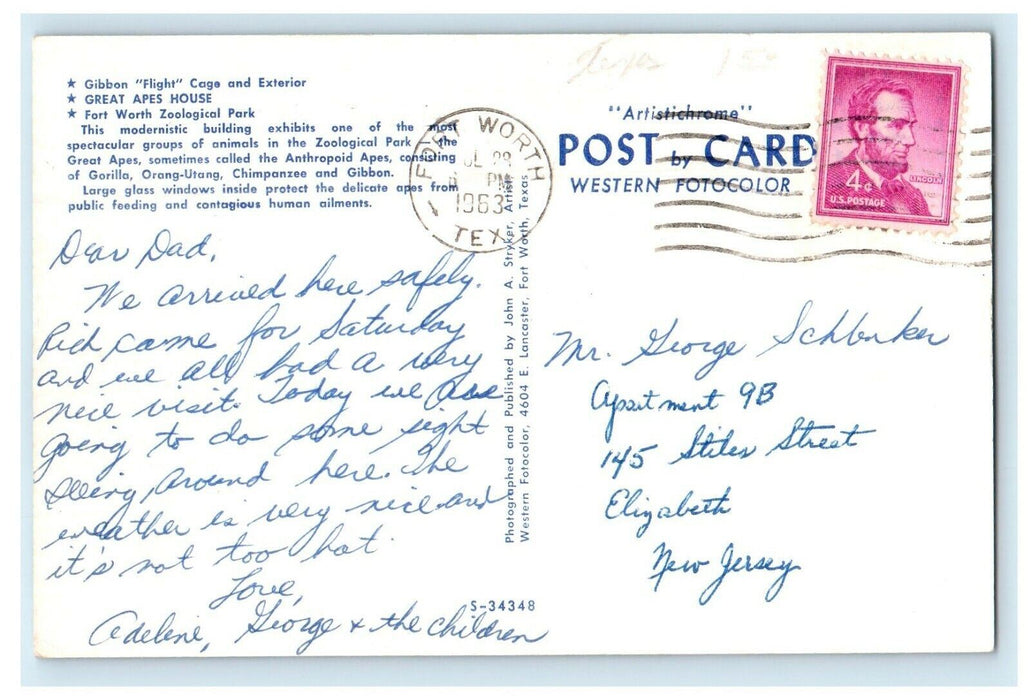 Texas
★ Gibbon "Flight" Cage and Exterior
★ GREAT APES HOUSE
★ Fort Worth Zoological Park
This modernistic building exhibits one of the most
spectacular groups of animals in the Zoological Park - the
Great Apes, sometimes called the Anthropoid Apes, consisting
of Gorilla, Orang-Utang, Chimpanzee and Gibbon.
Large glass windows inside protect the delicate apes from
public feeding and contagious human ailments.
FORT WORTH
PM
1963
TEX
"Artistichrome"
POST by CARD
WESTERN FOTOCOLOR
4¢
LINCOLN
U.S. POSTAGE
Dear Dad,
We arrived here safely.
Rich came for Saturday
and we all had a very
nice visit. Today we are
going to do some sight
seeing around here. The
weather is very nice and
it's not too hot.
Love,
Adeline, George & the children
Photographed and Published by John A. Stryker, Artist
Western Fotocolor, 4604 E. Lancaster, Fort Worth, Texas
S-34348
Mr. George Schlenker
Apartment 9B
145 Stiles Street
Elizabeth
New Jersey